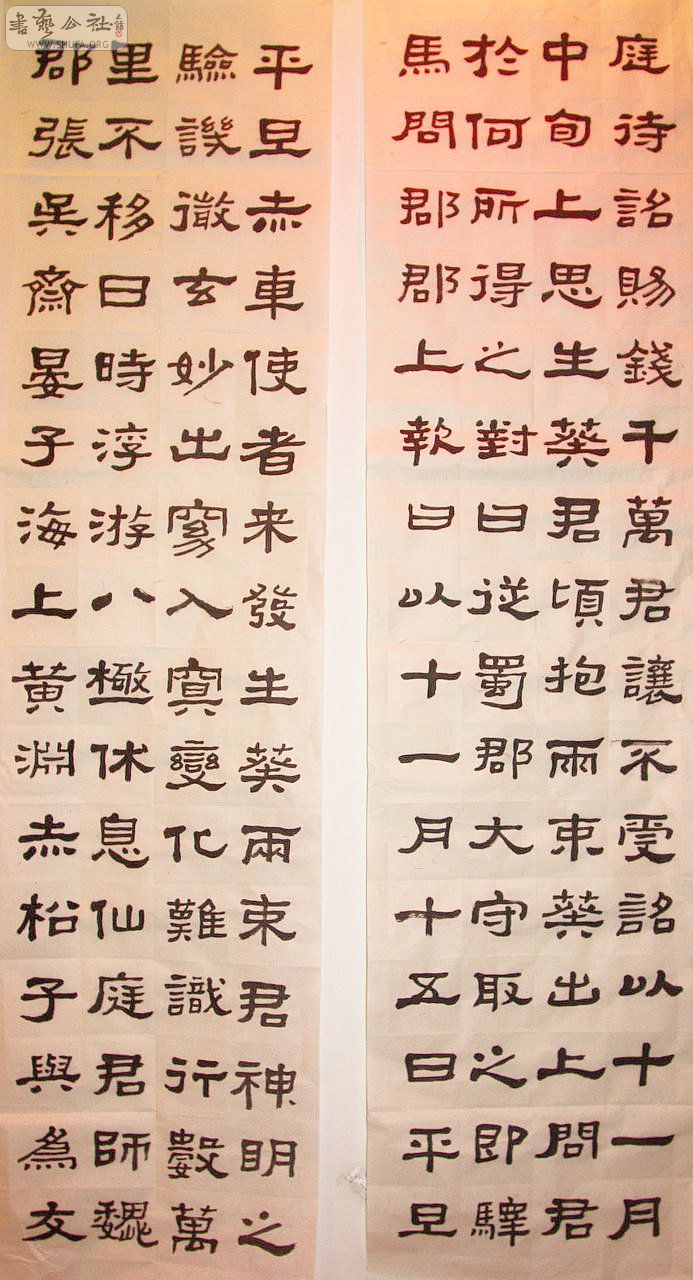 書藝公社
WWW.SHUFA.ORG
庭待詔賜錢千萬君讓不受詔以十一月
中旬上思生葵君頃抱兩束葵出上問君
於何所得之對曰從蜀郡大守取之即驛
馬問郡郡上報曰以十一月十五日平旦
平旦赤車使者来發生葵兩束君神明之
驗譏徹玄妙出窈入冥變化難識行數萬
里不移日時浮游八極休息仙庭君師魏
郡張吳齋晏子海上黄淵赤松子與為友